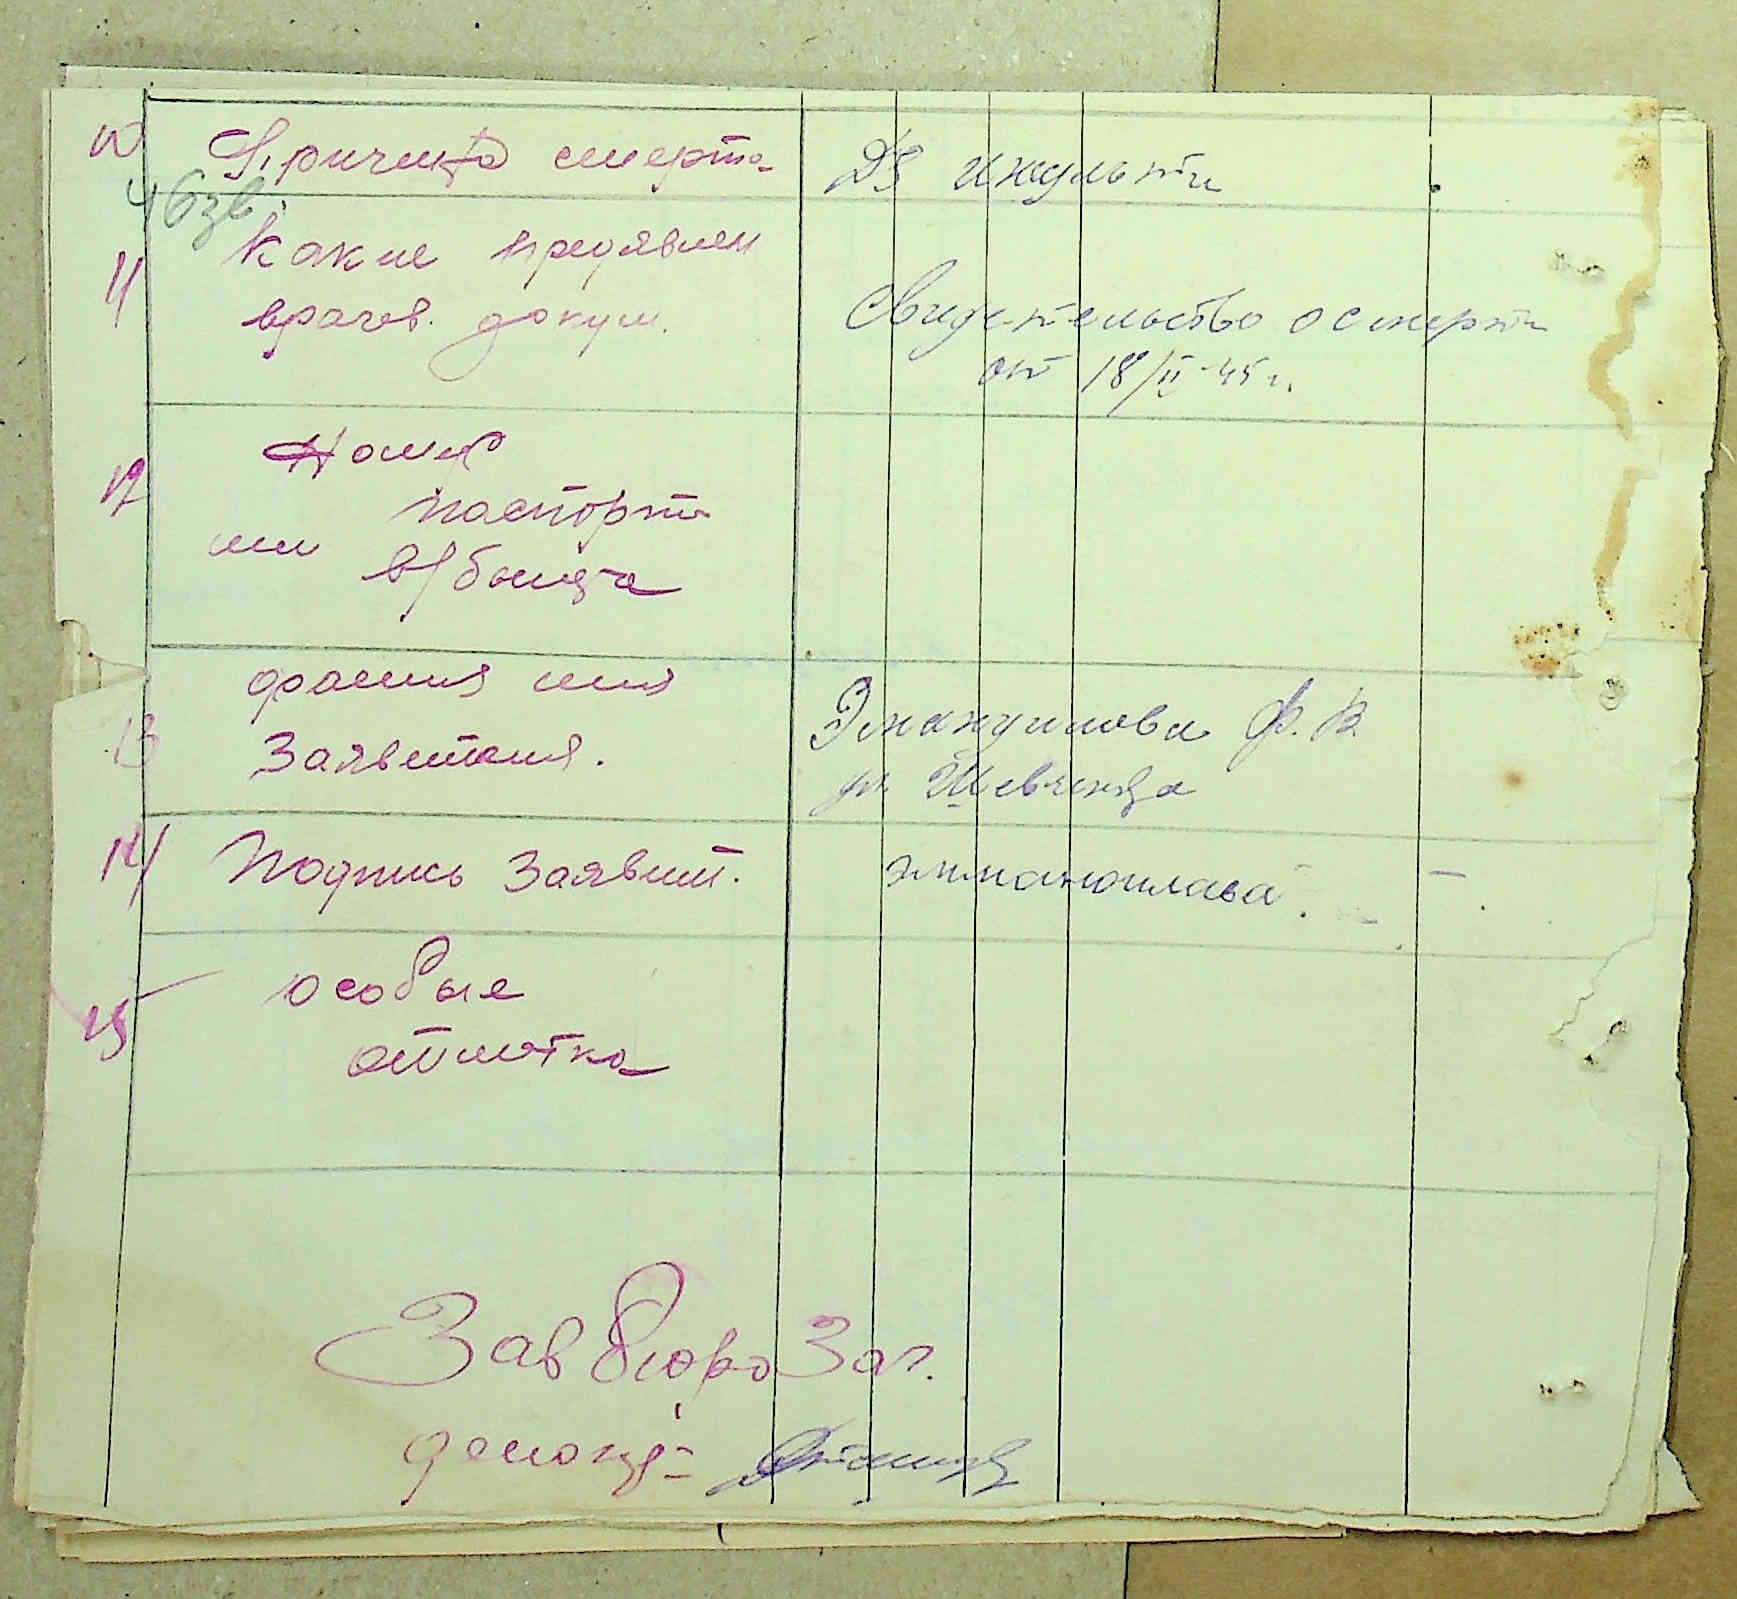 10 Причина смерти
11 Какие предявлен
врачев. докум.
Свидетельство о смерти
от 18/II-45 г.
12 Номер
паспорта
или в/билета
13 фамилия имя
Заявителя.
Эмануилова Ф. В.
ул Шевченка
14 Подпись Заявит. эммануилава
15 особые
отметка
Зав бюро Заг.